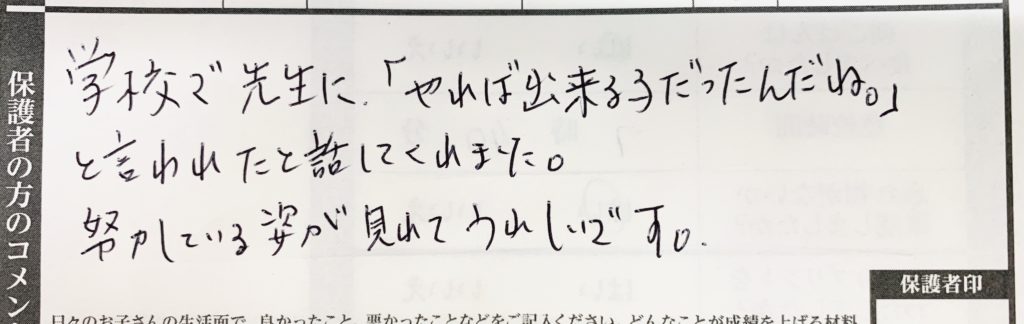 保護者の方のコメン
学校で先生に、「やれば出来る子だったんだね。」
と言われたと話してくれました。
努力している姿が見れてうれしいです。
保護者印
日々のお子さんの生活面で、良かったこと、悪かったことなどをご記入ください。どんなことが成績を上げる材料